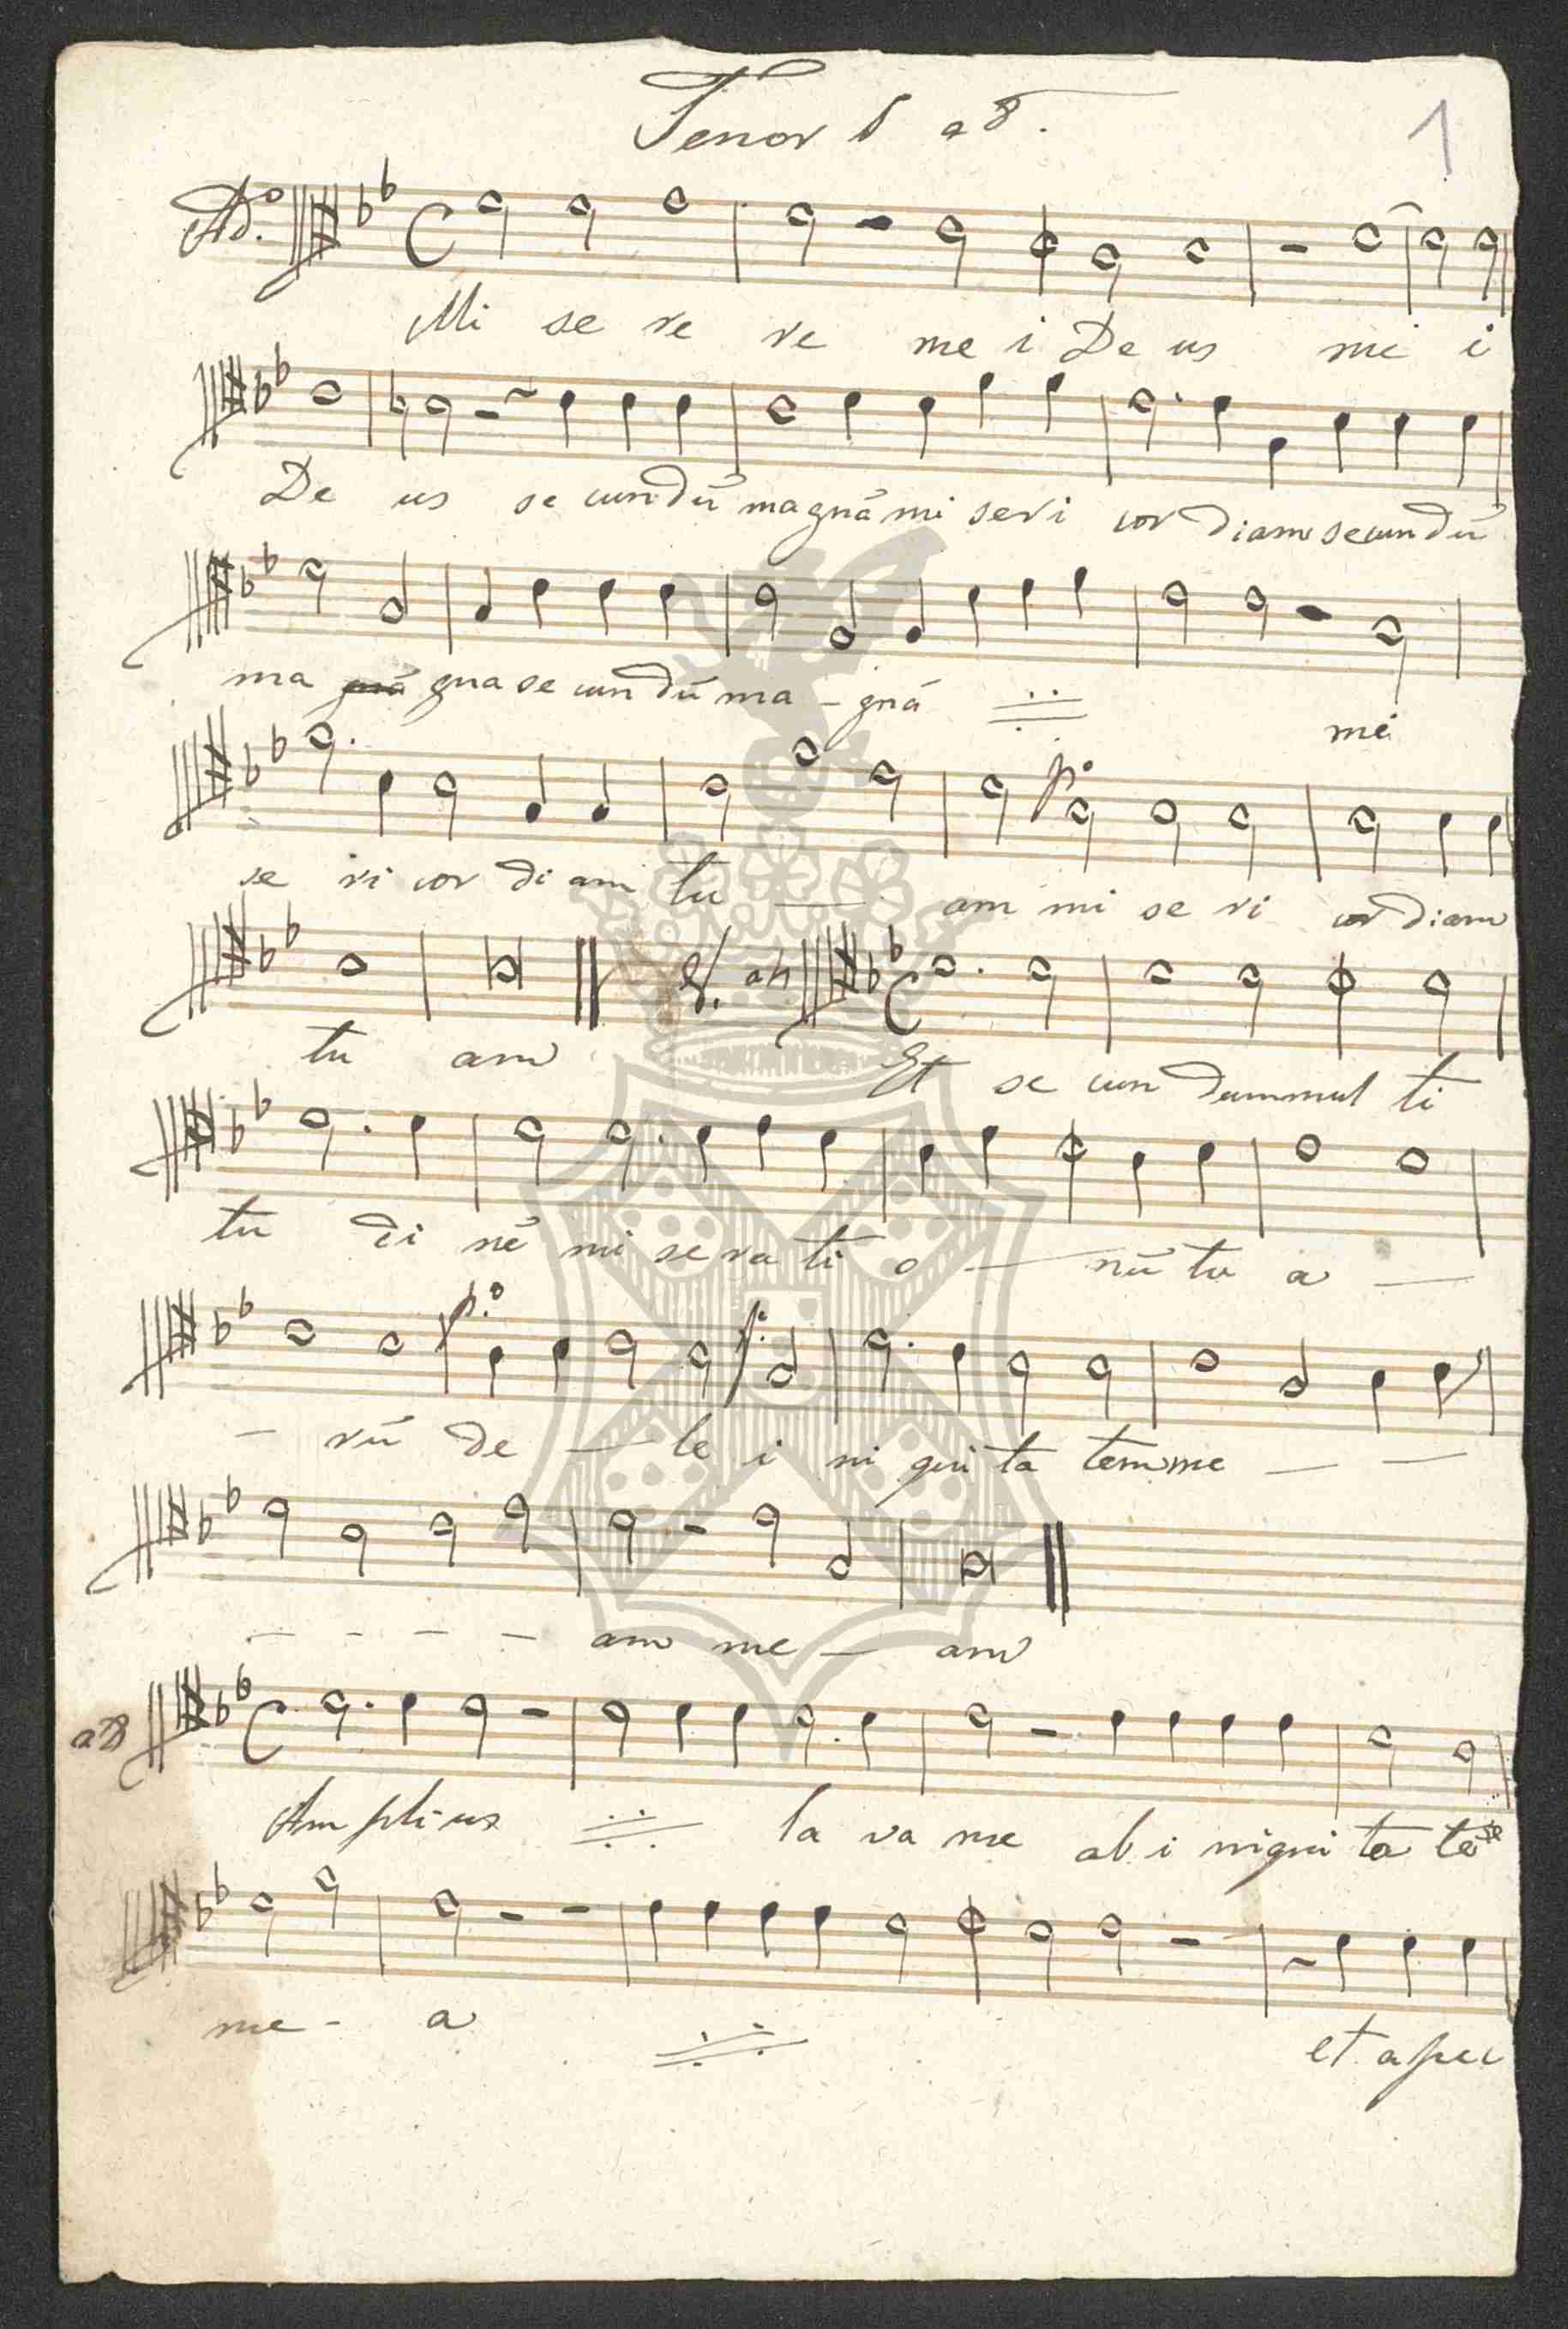 Tenor 1º a 8.
1
Ad.º
Mi se re re me i De us me i
De us se cun dũ magnã mi seri cor diam secundũ
ma gnã gna se cun dũ ma - gnã mi
pº
se ri cor di am tu — am mi se ri cor diam
V. a 4
tu am Et se cun dummul ti
tu di nẽ mi se ra ti o — nũ tu a —
p.º f.
— rũ de — le i ni qui ta temme — —
— - — — am me — am
a 8
Am pli us la va me ab i niqui ta te
me - a et a pec